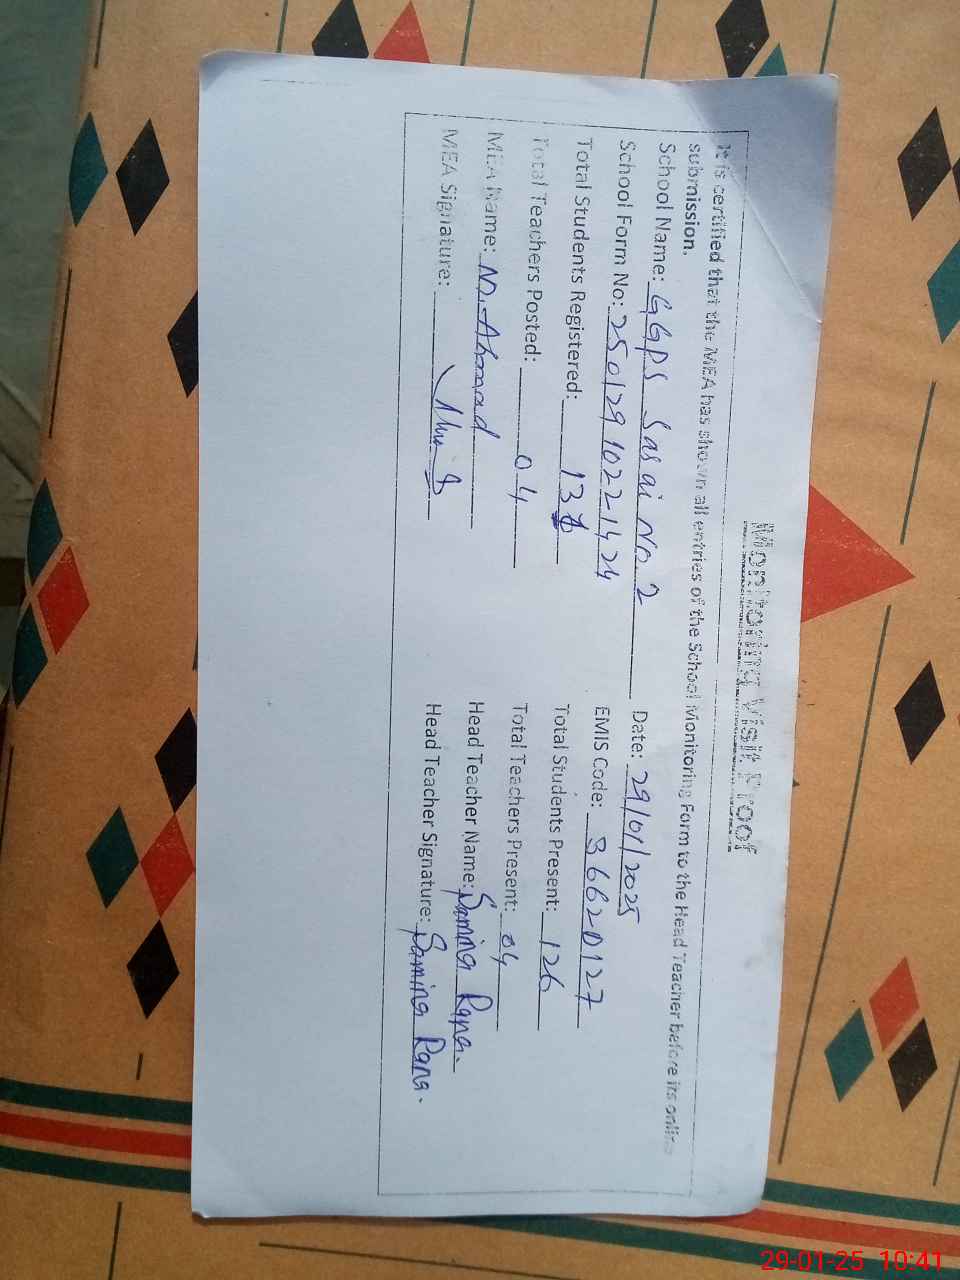 Monitoring Visit Proof
It is certified that the MEA has shown all entries of the School Monitoring Form to the Head Teacher before its online
submission.
School Name: GGPS Sasai No 2 Date: 29/01/2025
School Form No: 25012910221424 EMIS Code: 36620127
Total Students Registered: Total Students Present: 126
Total Teachers Posted: 04 Total Teachers Present: 04
MEA Name: M. Ahmad Head Teacher Name: Samina Rana.
MEA Signature: Head Teacher Signature: Samina Rana.
29-01-25 10:41